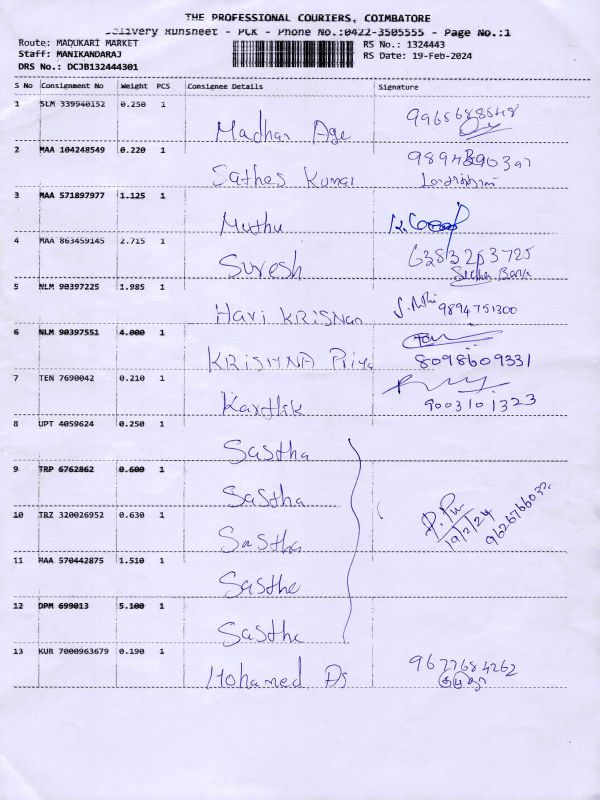 THE PROFESSIONAL COURIERS, COIMBATORE
Delivery Runsheet - PCK - Phone No.:0422-3505555 - Page No.:1
Route: MADUKARI MARKET
Staff: MANIKANDARAJ
DRS No.: DCJB132444301
RS No.: 1324443
RS Date: 19-Feb-2024
S No Consignment No Weight PCS Consignee Details Signature
1 SLM 339940152 0.250 1 Madhan Age 9965688548
2 MAA 104248549 0.220 1 Sathes Kumar
3 MAA 571897977 1.125 1 Muthu
4 MAA 863459145 2.715 1 Suresh 6383263725
5 NLM 90397225 1.985 1 Hari KRISNan 9894751300
6 NLM 90397551 4.000 1 KRISHNA Priya 8098609331
7 TEN 7690042 0.210 1 Karthik 9003101323
8 UPT 4059624 0.250 1 Sastha
9 TRP 6762862 0.600 1 Sastha
10 TRZ 320026952 0.630 1 Sastha 19/2/24
11 MAA 570442875 1.510 1 Sastha
12 DPM 699013 5.100 1 Sastha
13 KUR 7000963679 0.190 1 Mohamed 9677684262